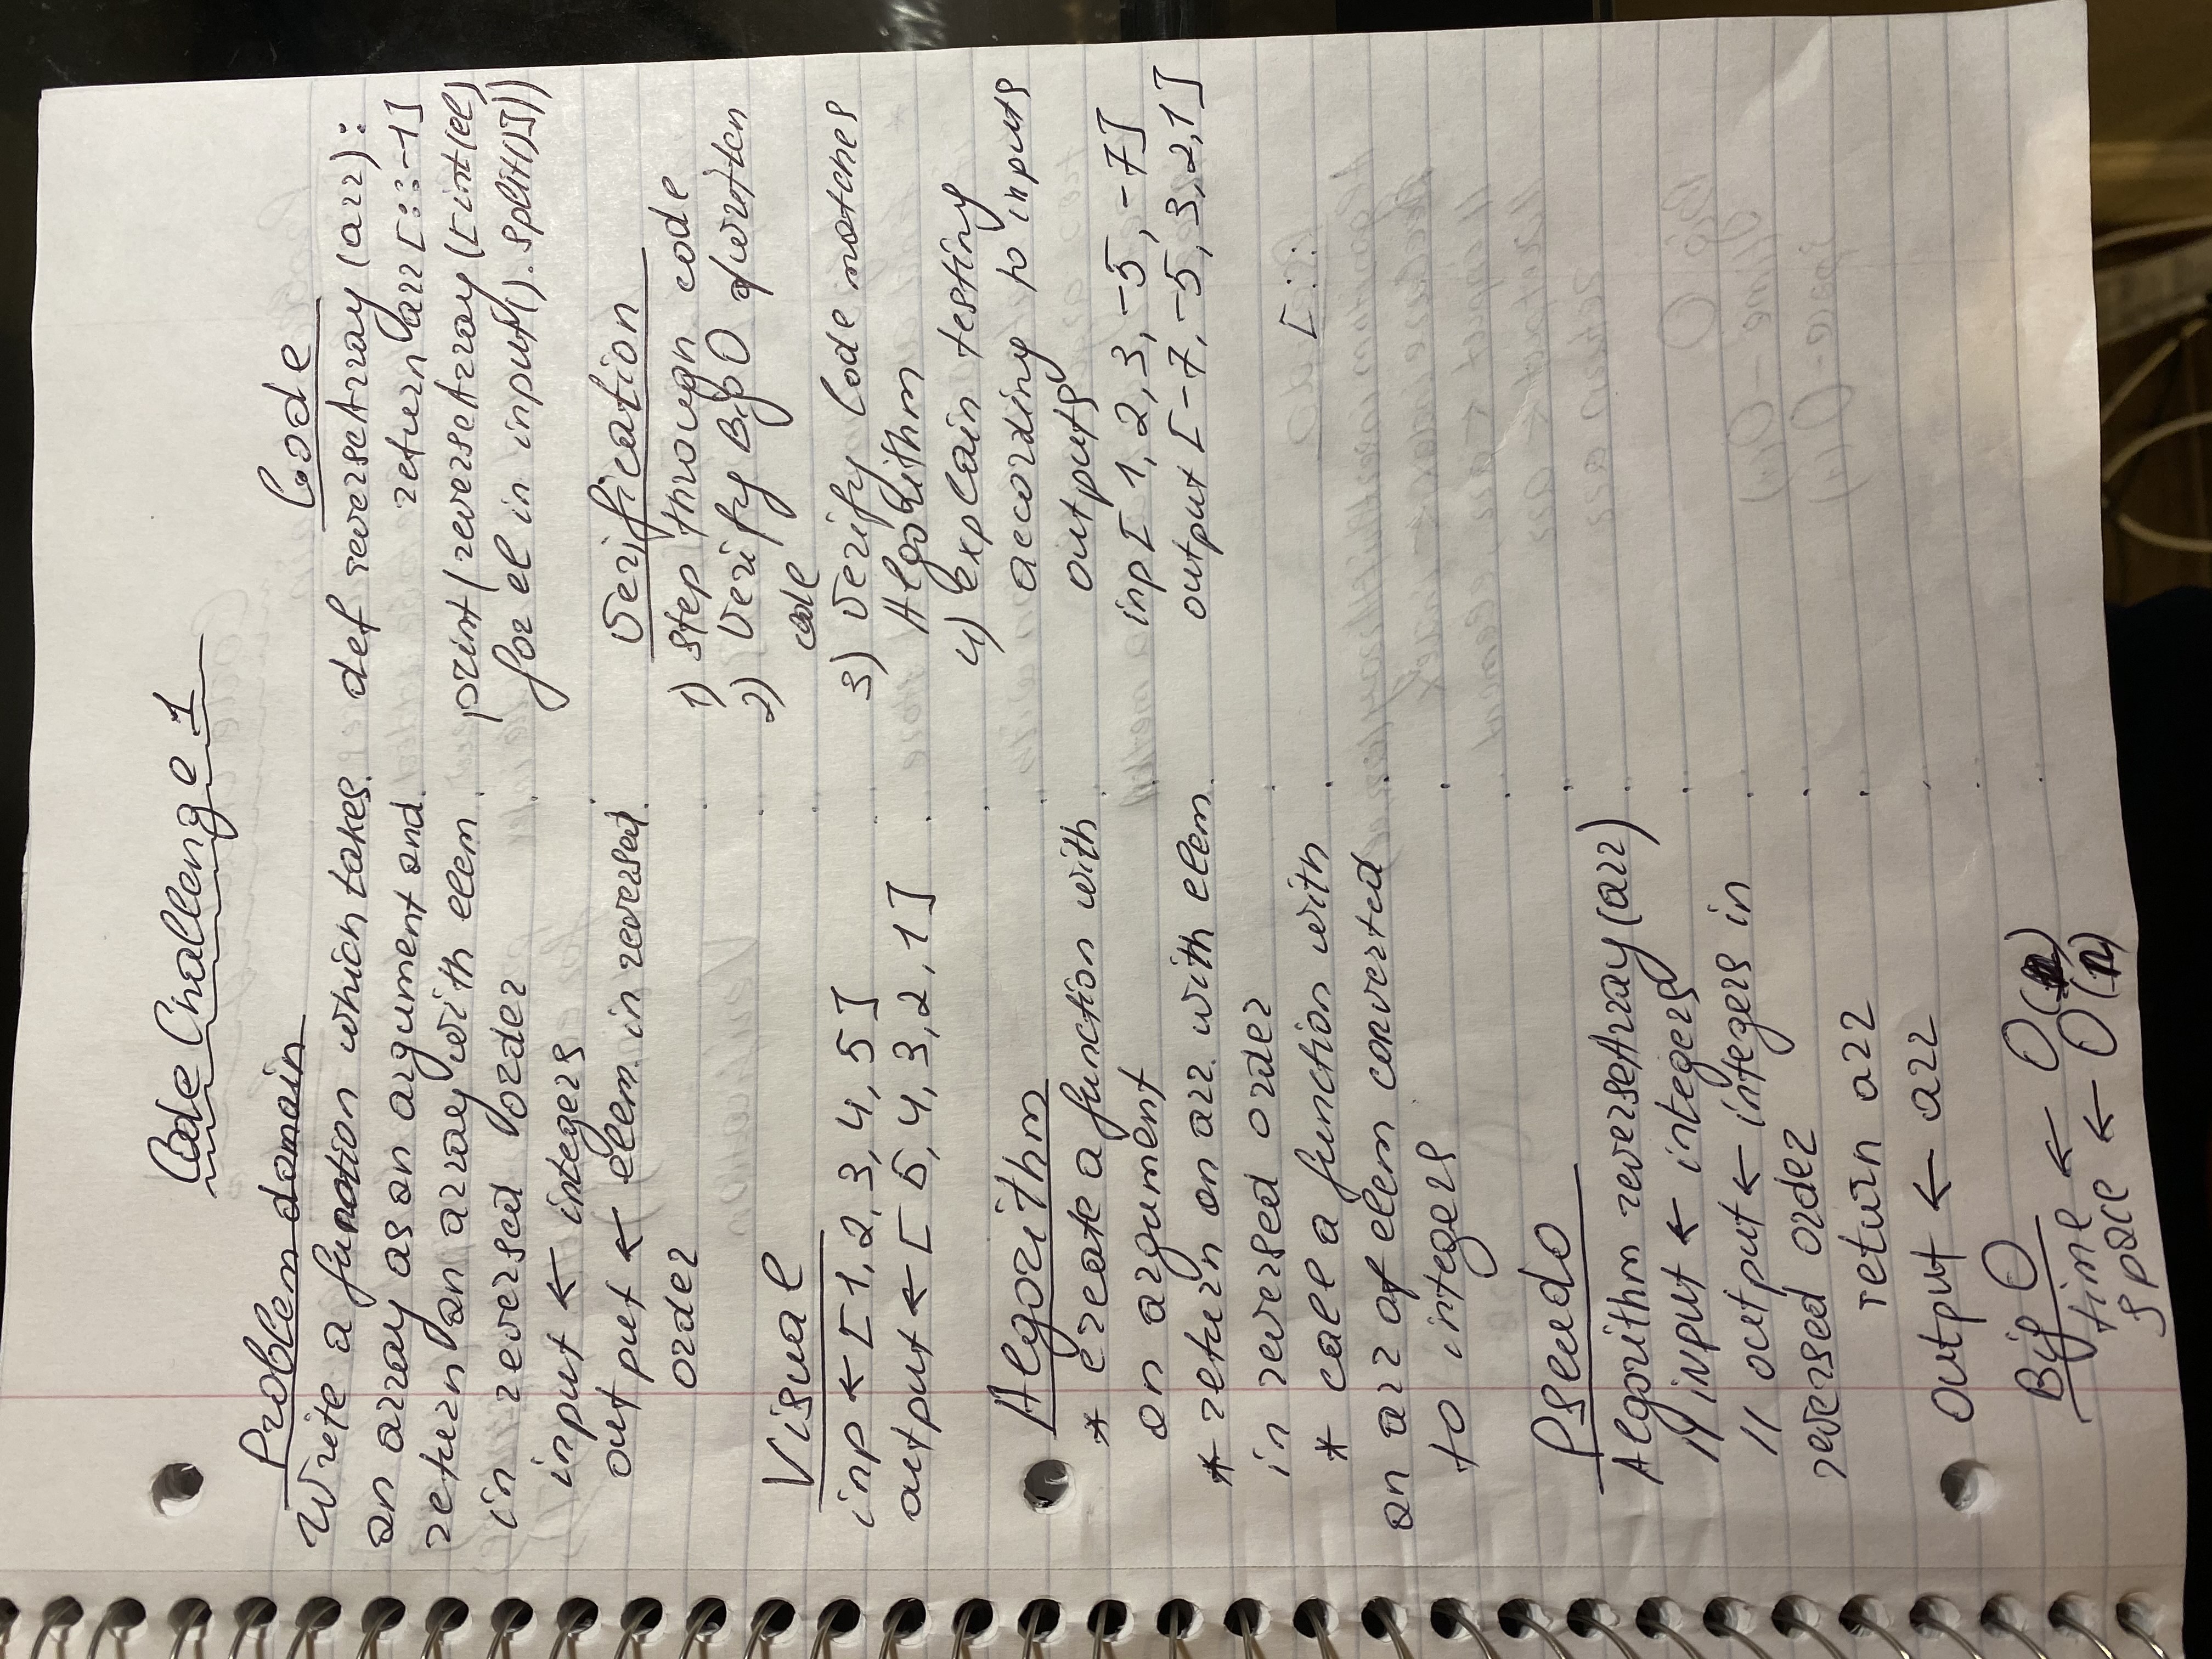 Code Challenge 1
Problem domain
Write a function which takes
an array as an argument and
return an array with elem
in reversed order
input ← integers
output ← elem. in reversed
order
Visual
inp ← [1, 2, 3, 4, 5]
output ← [5, 4, 3, 2, 1]
Algorithm
* create a function with
an argument
* return an arr. with elem
in reversed order
* call a function with
an arr of elem converted
to integers
Pseudo
Algorithm reverseArray(arr)
// input ← integers
// output ← integers in
reversed order
return arr
output ← arr
Big O
time ← O(n)
space ← O(n)
Code
def reverseArray(arr):
return arr[::-1]
print(reverseArray([int(el)
for el in input().split()]))
Verification
1) step through code
2) Verify Big O of written
code
3) Verify Code matches
Algorithm
4) explain testing
according to inputs
outputs
inp[1, 2, 3, -5, -7]
output[-7, -5, 3, 2, 1]
[::